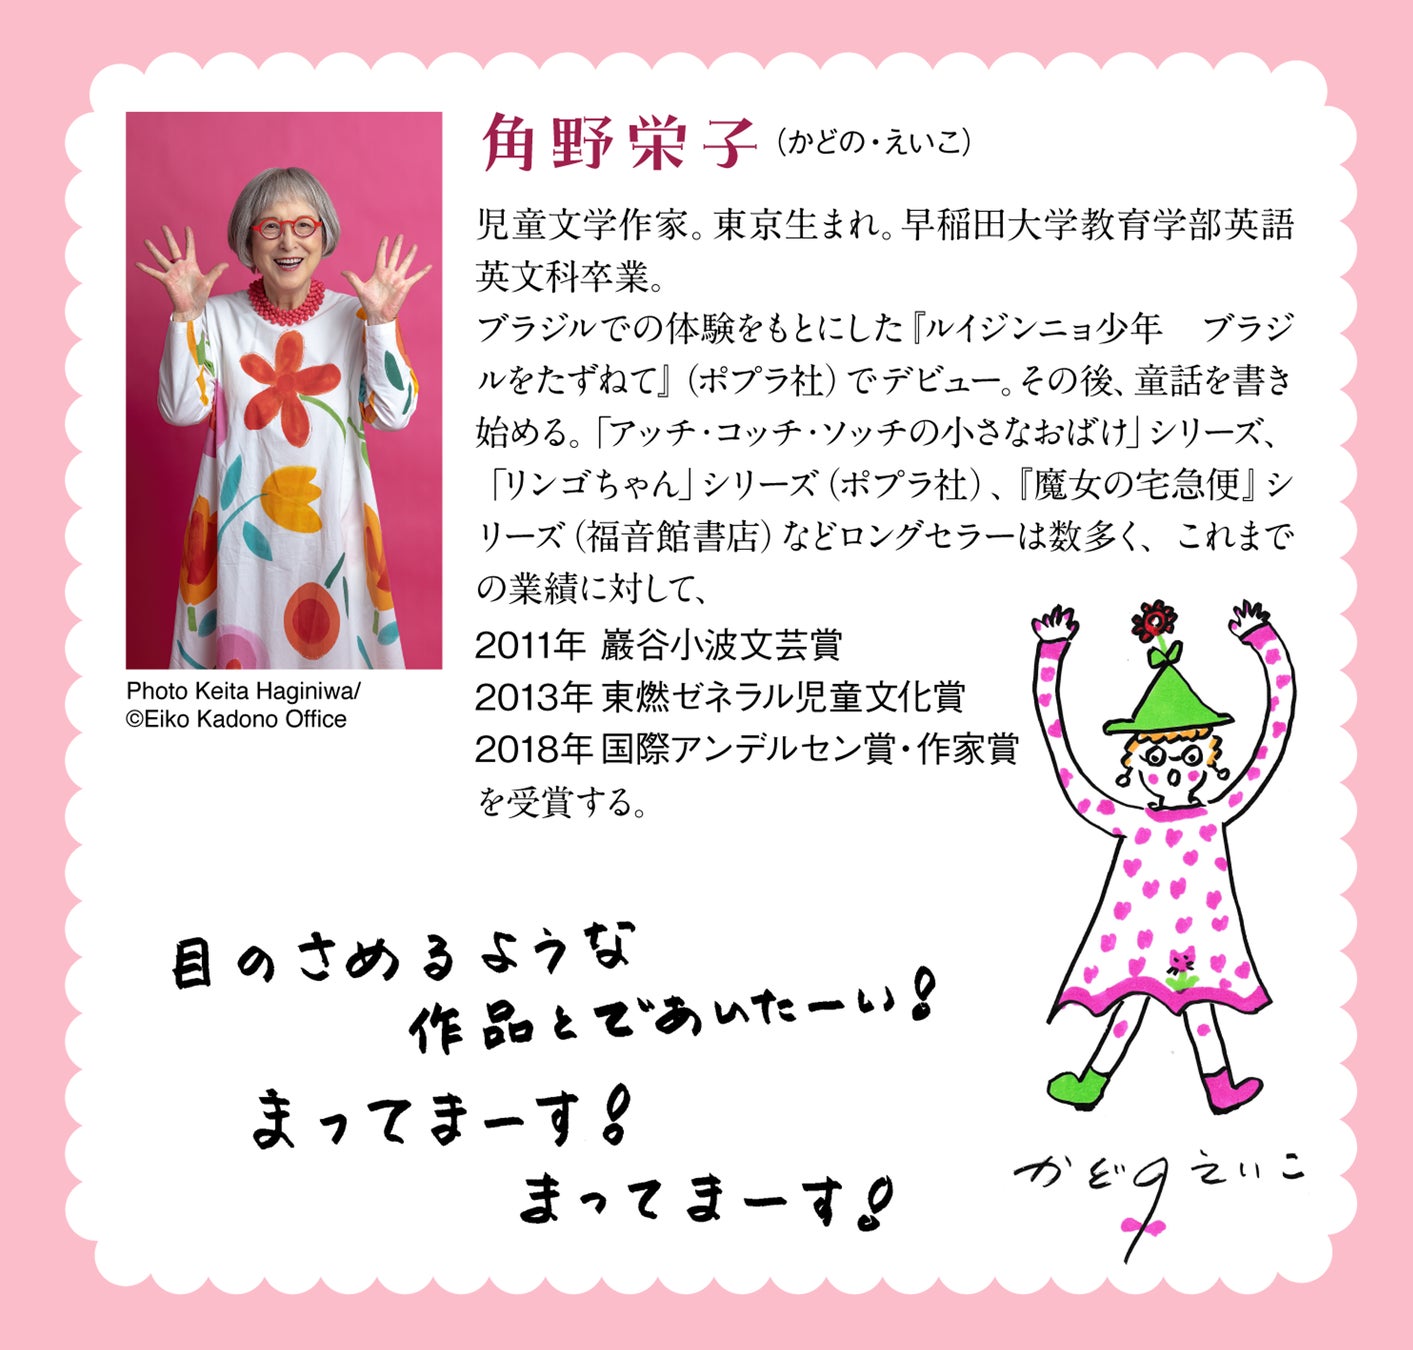 角野栄子(かどの・えいこ)
児童文学作家。東京生まれ。早稲田大学教育学部英語
英文科卒業。
ブラジルでの体験をもとにした『ルイジンニョ少年　ブラジ
ルをたずねて』(ポプラ社)でデビュー。その後、童話を書き
始める。「アッチ・コッチ・ソッチの小さなおばけ」シリーズ、
「リンゴちゃん」シリーズ(ポプラ社)、『魔女の宅急便』シ
リーズ(福音館書店)などロングセラーは数多く、これまで
の業績に対して、
2011年 巖谷小波文芸賞
2013年 東燃ゼネラル児童文化賞
2018年 国際アンデルセン賞・作家賞
を受賞する。
Photo Keita Haginiwa/
©Eiko Kadono Office
目のさめるような
作品とであいたーい!
まってまーす!
まってまーす!
かどのえいこ